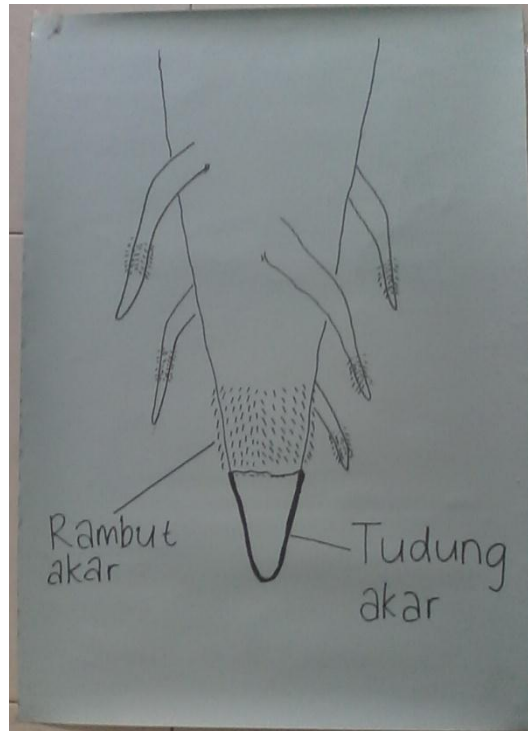 Rambut
akar
Tudung
akar